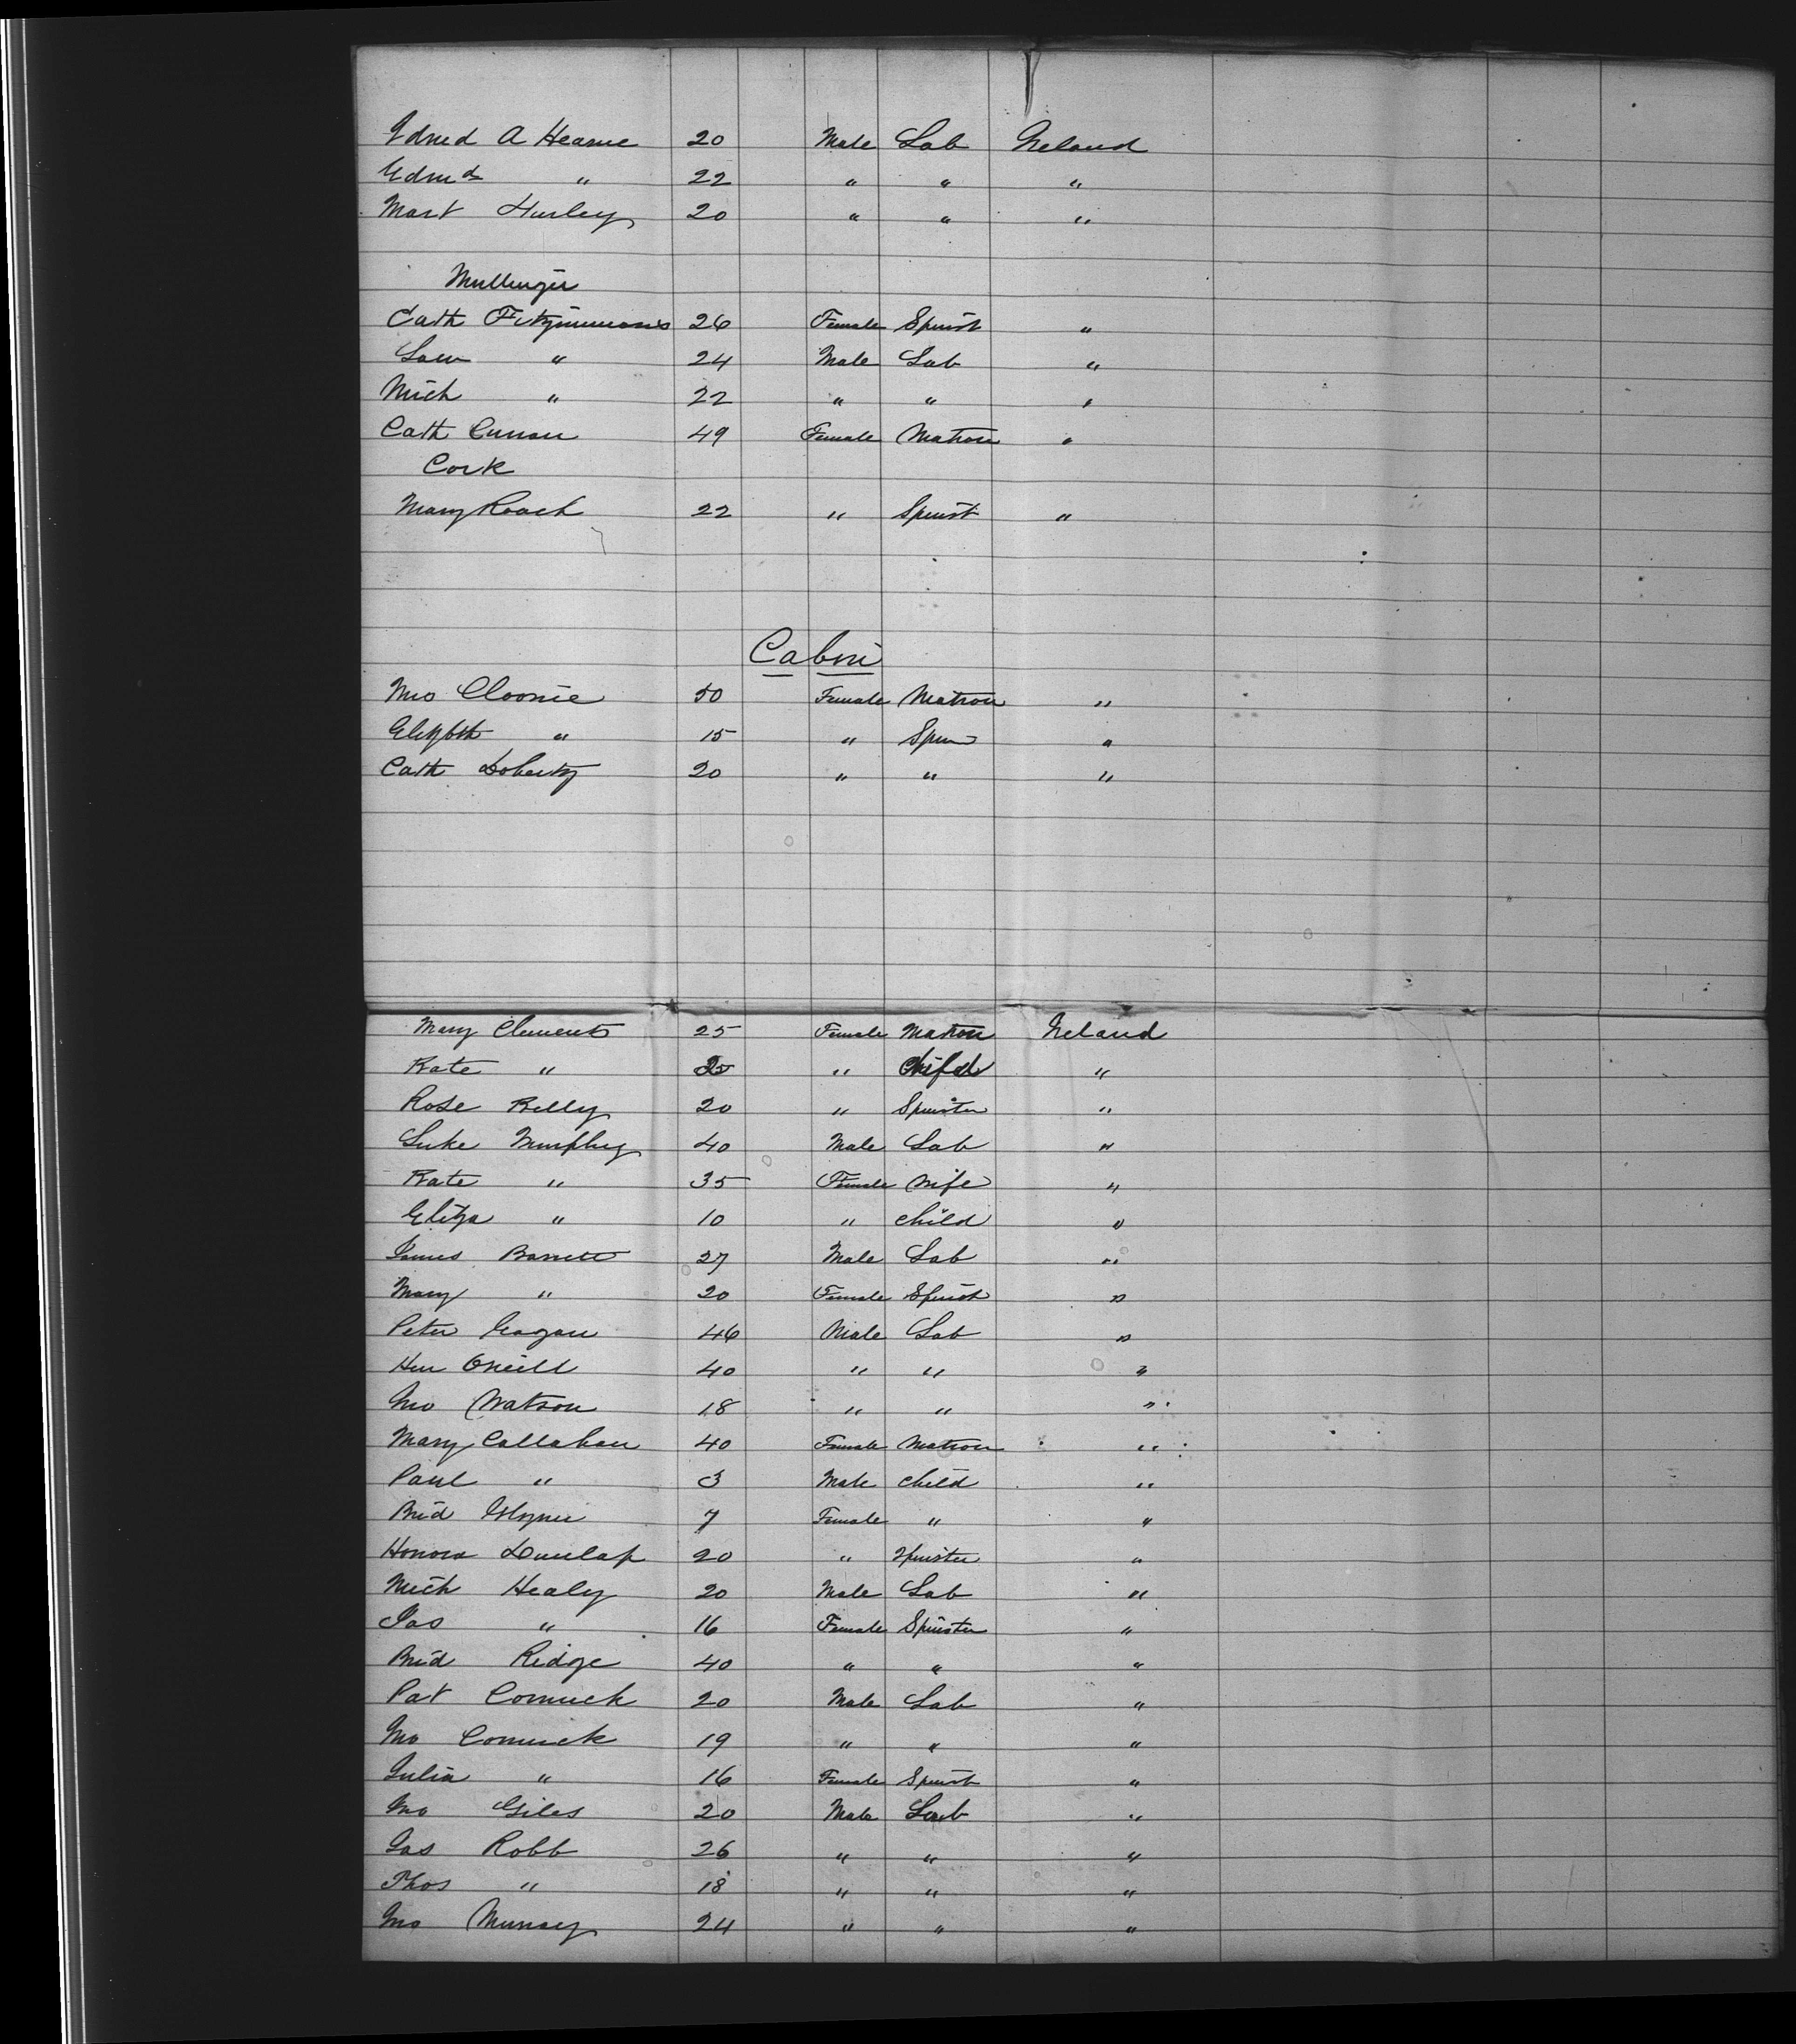 Edmd A Hearne 20 Male Lab Ireland
Edmd " 22 " " "
Mart Hurley 20 " " "
Mullingar
Cath Fitzimmons 26 Female Spinst "
Law " 24 Male Lab "
Mich " 22 " " "
Cath Curran 49 Female Matron "
Cork
Mary Roach 22 " Spinst "
Cabin
Mrs Cloonie 50 Female Matron "
Elizbth " 15 " Spin "
Cath Doherty 20 " " "
Mary Clements 25 Female Matron Ireland
Kate " " Child "
Rose Kelly 20 " Spinster "
Luke Murphy 40 Male Lab "
Kate " 35 Female Wife "
Eliza " 10 " child "
James Barrett 27 Male Lab "
Mary " 20 Female Spinst "
Peter Geagan 46 Male Lab "
Hen Oneill 40 " " "
Jno Watson 18 " " "
Mary Callahan 40 Female Matron "
Paul " 3 Male child "
Brid Glynn 7 Female " "
Honora Dunlap 20 " Spinster "
Mich Healy 20 Male Lab "
Jas " 16 Female Spinster "
Brid Ridge 40 " " "
Pat Cormick 20 Male Lab "
Jno Cormick 19 " " "
Julia " 16 Female Spinst "
Jno Giles 20 Male Lab "
Jas Robb 26 " " "
Thos " 18 " " "
Jno Murray 24 " " "